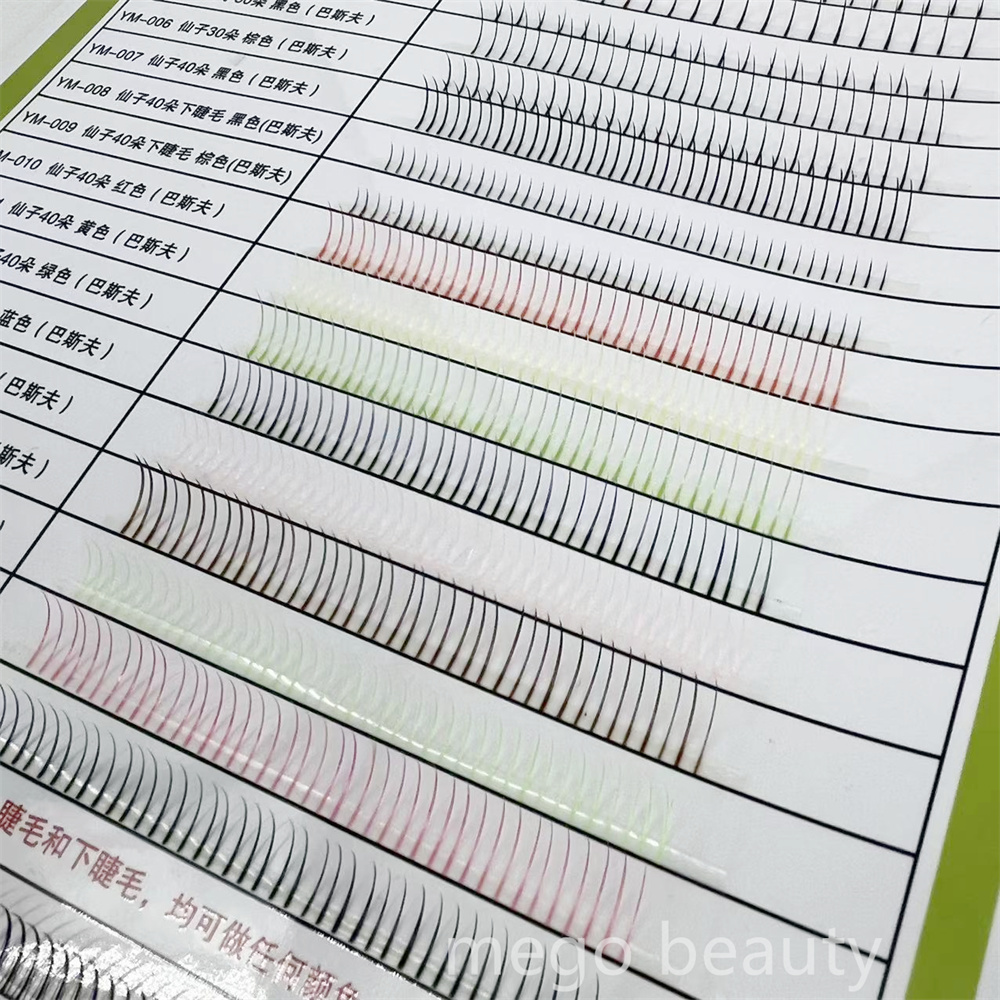 30朵 黑色(巴斯夫)
YM-006 仙子30朵 棕色(巴斯夫)
YM-007 仙子40朵 黑色(巴斯夫)
YM-008 仙子40朵下睫毛 黑色(巴斯夫)
YM-009 仙子40朵下睫毛 棕色(巴斯夫)
M-010 仙子40朵 红色(巴斯夫)
仙子40朵 黄色(巴斯夫)
40朵 绿色(巴斯夫)
蓝色(巴斯夫)
(巴斯夫)
斯夫)
睫毛和下睫毛，均可做任何颜色
mego beauty